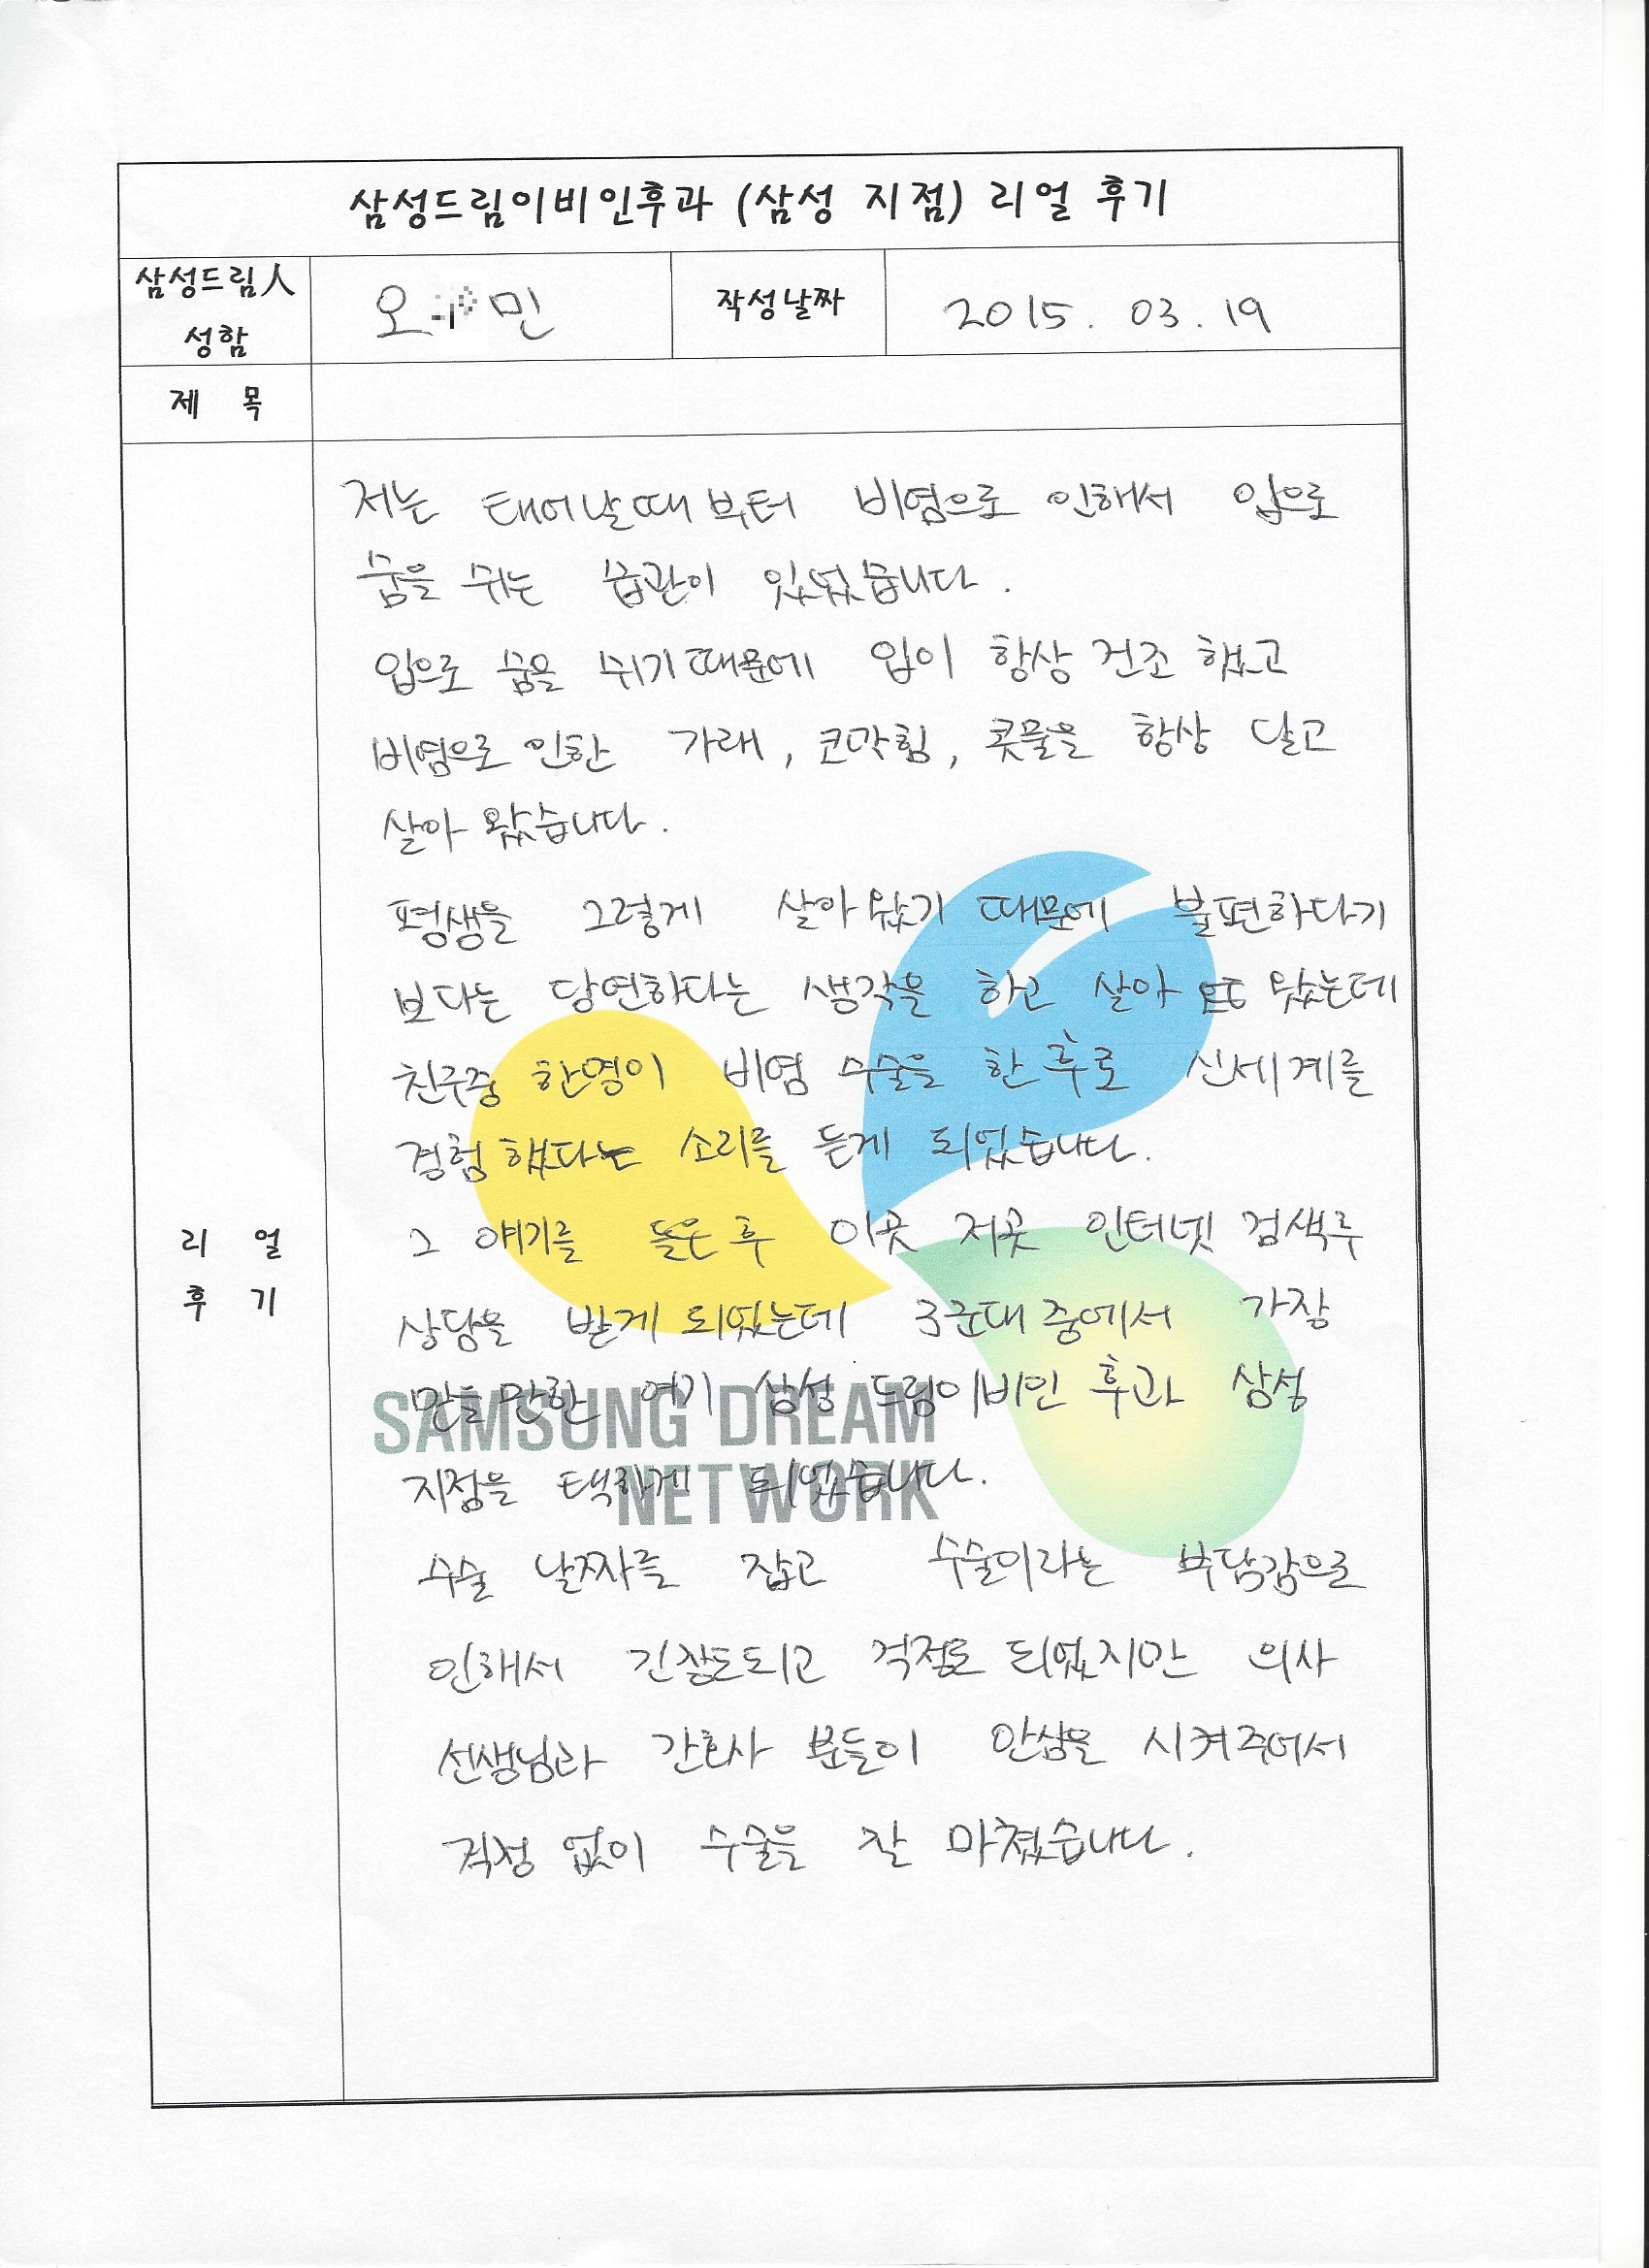 삼성드림이비인후과 (삼성 지점) 리얼 후기
삼성드림人
성함
오 민
작성날짜
2015. 03. 19
제 목
저는 태어날때부터 비염으로 인해서 입으로
숨을 쉬는 습관이 있었습니다.
입으로 숨을 쉬기때문에 입이 항상 건조 했고
비염으로 인한 가래, 코막힘, 콧물을 항상 달고
살아 왔습니다.
평생을 그렇게 살아왔기 때문에 불편하다기
보다는 당연하다는 생각을 하고 살아 왔는데
친구중 한명이 비염 수술을 한 후로 신세계를
경험했다는 소리를 듣게 되었습니다.
그 얘기를 들은 후 이곳 저곳 인터넷 검색후
상담을 받게 되었는데 3군데 중에서 가장
만한 여기 삼성 드림이비인 후과 삼성
지점을 택하게 되었습니다.
수술 날짜를 잡고 수술이라는 부담감으로
인해서 긴장도되고 걱정도 되었지만 의사
선생님과 간호사 분들이 안심을 시켜주어서
걱정 없이 수술을 잘 마쳤습니다.
리 얼
후 기
SAMSUNG DREAM
NETWORK